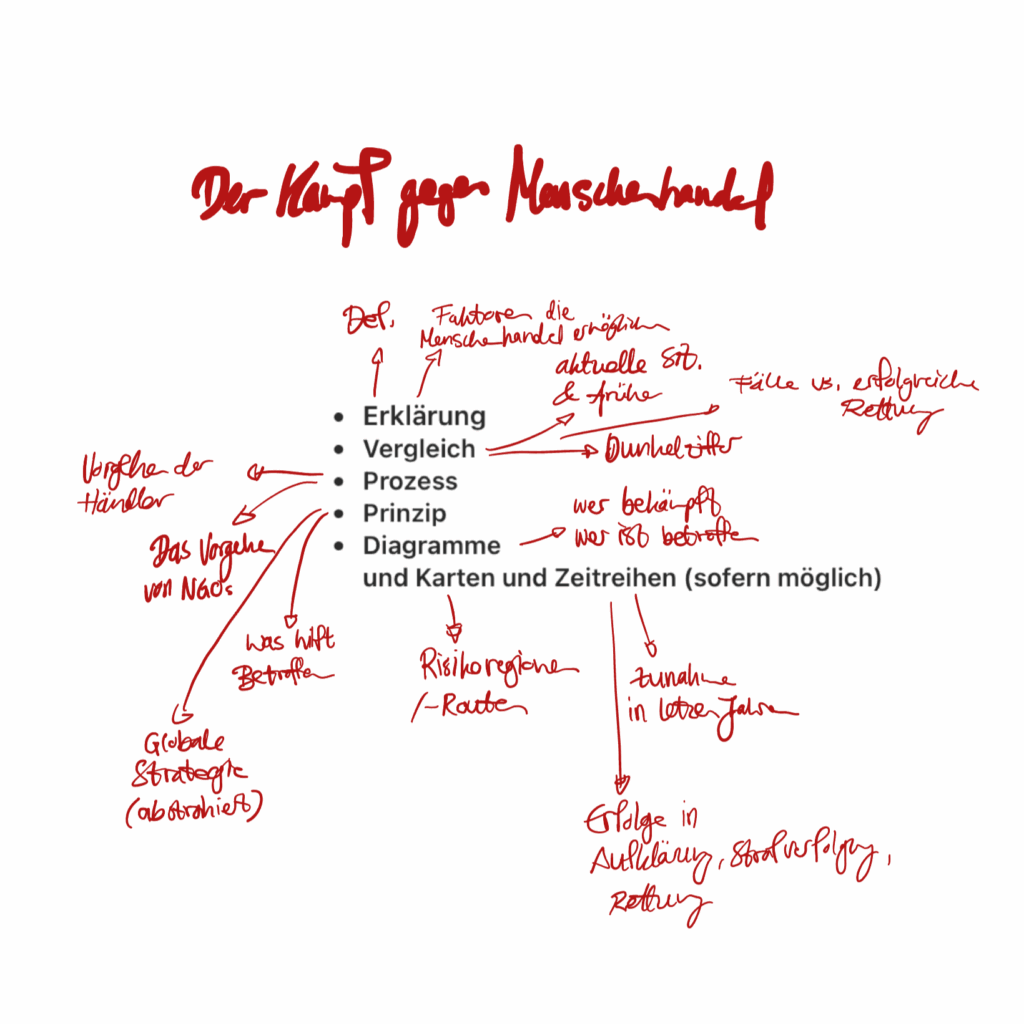 Der Kampf gegen Menschenhandel
Def.
Faktoren die
Menschenhandel ermöglichen
aktuelle Sit.
& frühe
Fälle vs. erfolgreiche
Rettung
• Erklärung
• Vergleich
Dunkelziffer
• Prozess
Vorgehen der
Händler
• Prinzip
wer bekämpft
wer ist betroffen
• Diagramme
und Karten und Zeitreihen (sofern möglich)
Das Vorgehen
von NGOs
was hilft
Betroffen
Risikoregionen
/-Routen
Zunahme
in letzen Jahren
Globale
Strategie
(abstrahiert)
Erfolge in
Aufklärung, Strafverfolgung,
Rettung